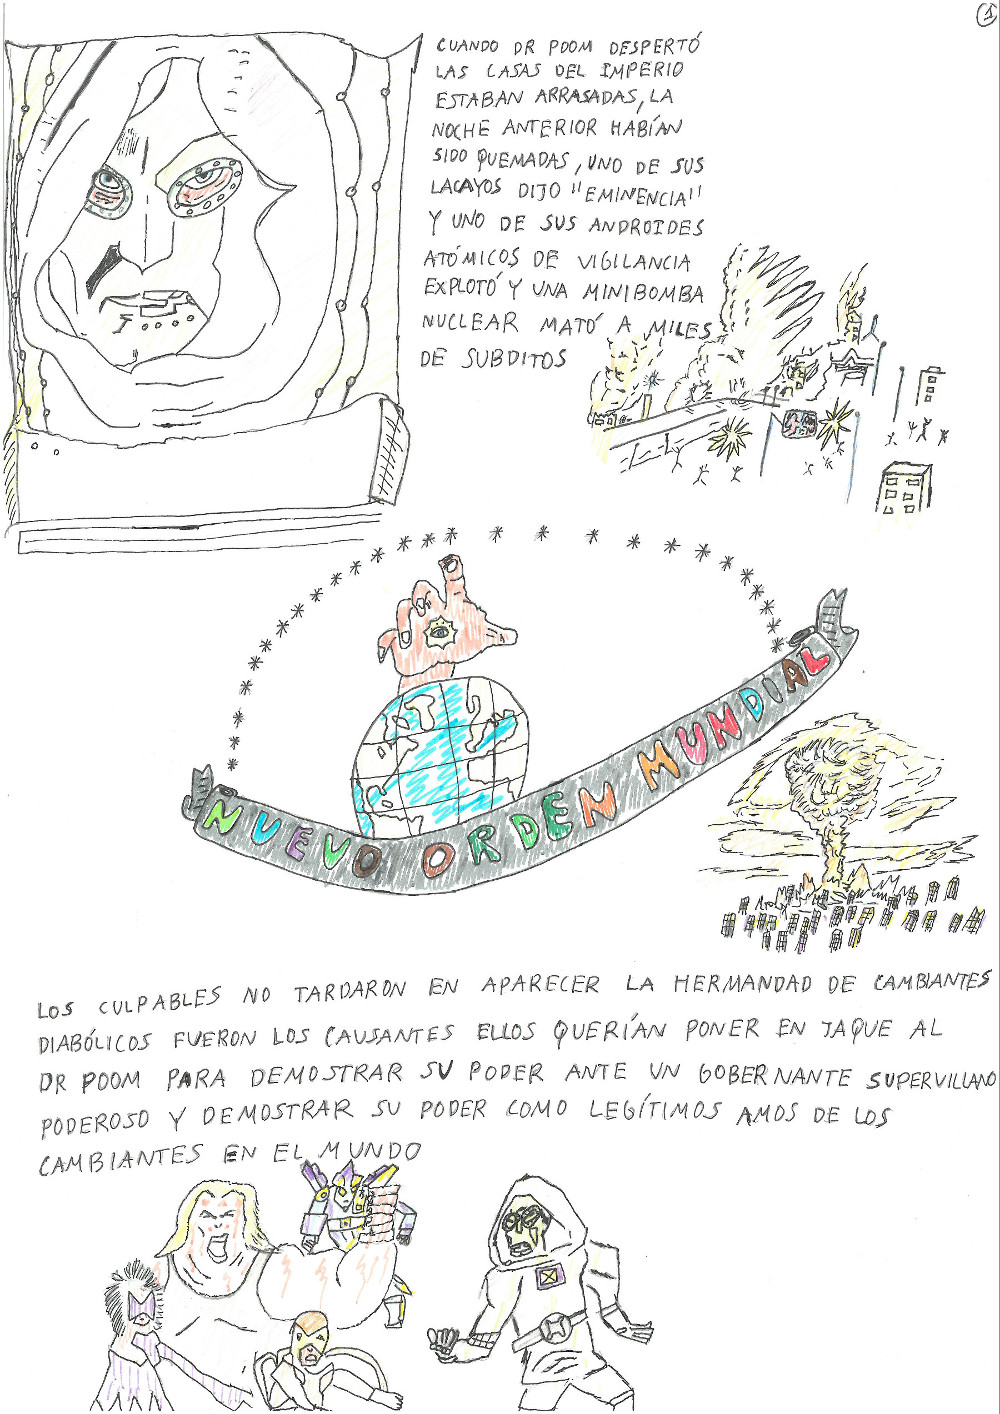 1
CUANDO DR POOM DESPERTÓ
LAS CASAS DEL IMPERIO
ESTABAN ARRASADAS, LA
NOCHE ANTERIOR HABÍAN
SIDO QUEMADAS, UNO DE SUS
LACAYOS DIJO "EMINENCIA"
Y UNO DE SUS ANDROIDES
ATÓMICOS DE VIGILANCIA
EXPLOTÓ Y UNA MINIBOMBA
NUCLEAR MATÓ A MILES
DE SUBDITOS
NUEVO ORDEN MUNDIAL
LOS CULPABLES NO TARDARON EN APARECER LA HERMANDAD DE CAMBIANTES
DIABÓLICOS FUERON LOS CAUSANTES ELLOS QUERÍAN PONER EN JAQUE AL
DR POOM PARA DEMOSTRAR SU PODER ANTE UN GOBERNANTE SUPERVILLANO
PODEROSO Y DEMOSTRAR SU PODER COMO LEGÍTIMOS AMOS DE LOS
CAMBIANTES EN EL MUNDO